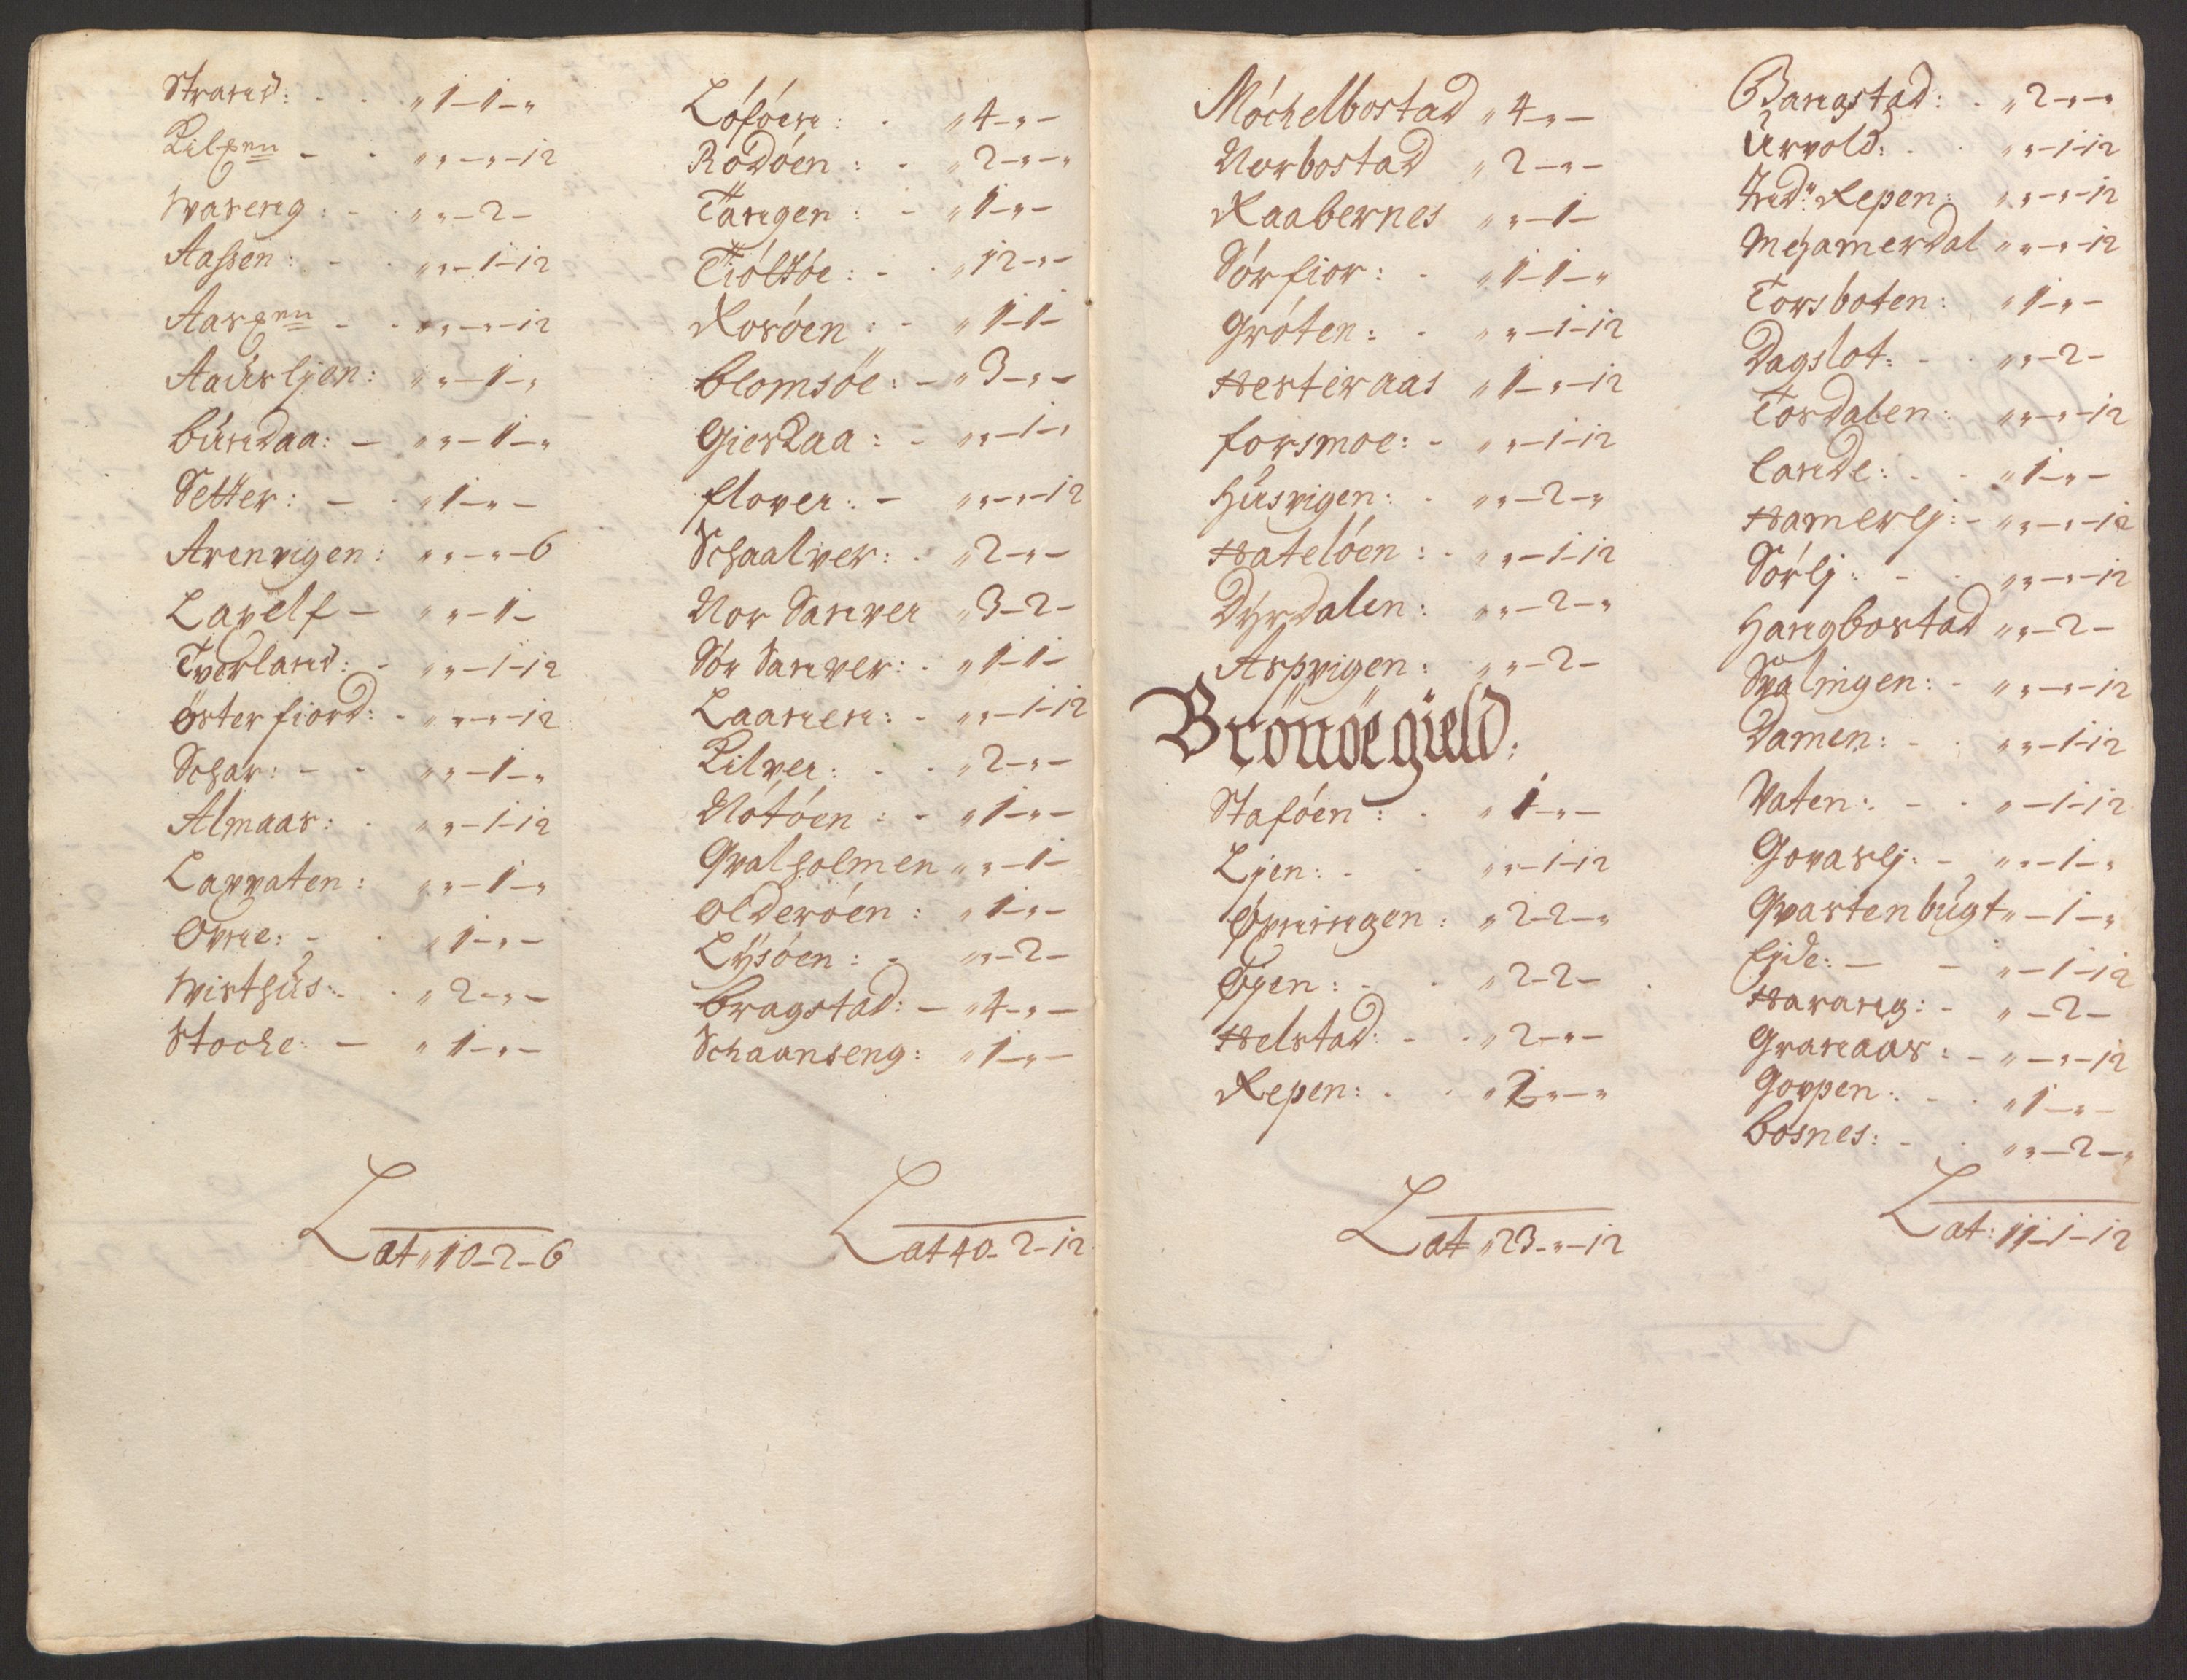 Strand: - - „ 1 – 1 – „
Kilgen - - „ „ – „ – 12
Hvareng: - „ „ – 2 –
Aassen: - - „ „ – 1 – 12
Aasgen - - „ „ – „ – 12
Aaursljen: „ „ – 1 – „
Bürdaa: – „ „ – 1 – „
Setter: – - „ 1 – „ –
Arenvigen: „ „ – „ – 6
Lavelf – „ „ – 1 –
Tverland: - „ „ – 1 – 12
österfiord: - „ „ – „ – 12
Schar: - - „ „ – 1 – „
Almaas: - „ „ – 1 – 12
Lavvaten: „ „ – 1 – „
Ovne: - - „ 1 – „ –
Hvisthüs: - „ 2 – „ –
Stocke: – „ 1 – „ –
Lat „ 10 – 2 – 6
Löföen: - „ 4 – „ –
Rödöen: - „ 2 – „ – „
Tangen: - „ 1 – „ –
Tiöttöe: - - „ 12 – „ –
Rosöen: - „ 1 – 1 –
Blomsöe: – „ 3 – „ –
Gieskaa: - „ „ – 1 – „
flover: – „ „ – „ – 12
Schaalver: - „ 2 – „ –
Nor Sanver „ 3 – 2 –
Sör Sanver: - „ 1 – 1 –
Laanen: - „ „ – 1 – 12
Kilver: - - „ 2 – „ –
Nötöen: - „ 1 – „ –
Qvalholmen „ „ – 1 –
Olderöen: „ 1 – „ –
Lysöen: - „ „ – 2 –
Bragstad: – „ 4 – „ –
Schaanseng: „ 1 – „ –
Lat 40 – 2 – 12
Möchelbostad „ 4 – „ –
Norbostad „ 2 – „ –
Raabernes „ „ – 1 –
Sörfior: - „ 1 – 1 – „
Gröten: - „ „ – 1 – 12
Hesteraas „ 1 – „ – 12
forsmoe: - „ „ – 1 – 12
Hüsvigen: - „ „ – 2 – „
Hatelöen: - „ „ – 1 – 12
Dyrdalen: „ „ – 2 – „
Aspvigen: „ „ – 2 –
Brönöegield:
Staföen: - „ 1 – „ –
Ljen: - - „ „ – 1 – 12
Opningen: „ 2 – 2 – „
Öyen: - - „ 2 – 2 –
Helstad: - - „ 2 – „ –
Repen: - - „ 2 „ – „
Lat „ 23 – „ – 12
Bangstad: - „ 2 – „ – „
Urvold: - - „ „ – 1 – 12
Indr Repen: „ „ – „ – 12
Mehamerdal „ „ – „ – 12
Torsboten: „ 1 – „ –
Dagslot: - - „ „ – 2 –
Tosdalen: „ „ – „ – 12
Lande: - - „ 1 – „ –
Hamerlj: - „ „ – „ – 12
Sörlj: - - „ „ – „ – 12
Hangbostad „ „ – 2 –
Svalingen: - „ „ – „ – 12
Damen: - - „ „ – 1 – 12
Vaten: - - „ – 1 – 12
Govaslj: - „ „ – 1 – „
Qvastenbügt „ – 1 – „
Ejde: – - „ – 1 – 12
Harang: - „ – 2 –
Granaas: - „ – „ – 12
Goppen: - - „ 1 – „ –
Bosnes: - - „ „ – 2 – „
Lat: 11 – 1 – 12